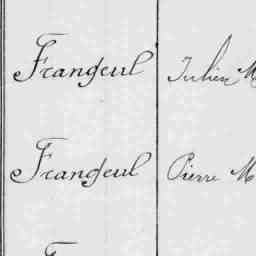 Frangeul Julien M
Frangeul Pierre M